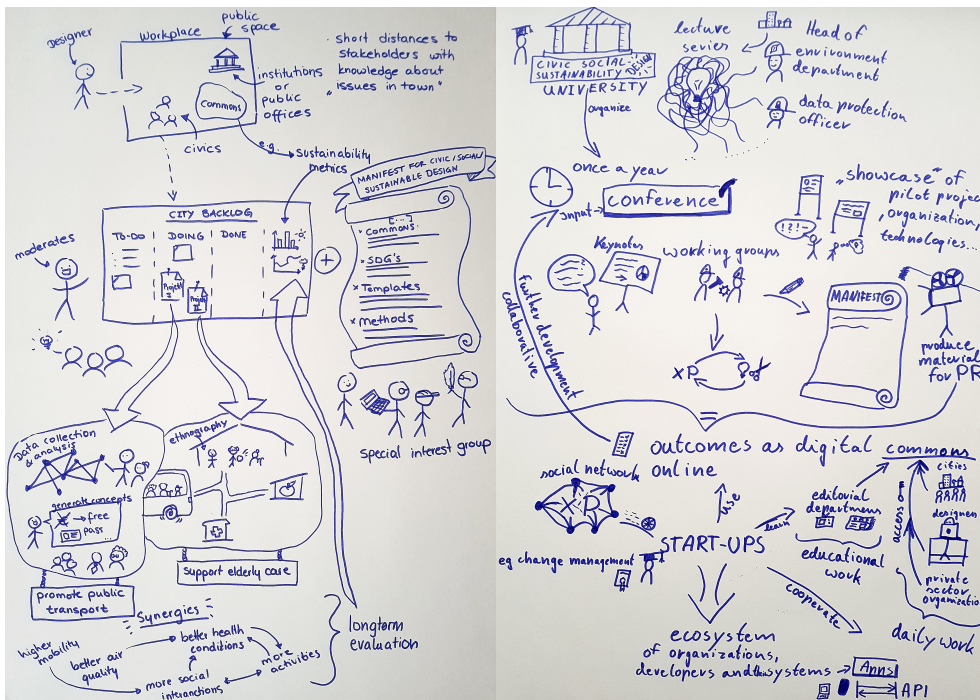 Designer
Workplace
public
space
institutions
or
public
offices
commons
civics
e.g.
· short distances to
stakeholders with
knowledge about
"issues in town"
Sustainability
metrics
MANIFEST FOR CIVIC/SOCIAL/
SUSTAINABLE DESIGN
[...]
× commons:
× SDG's
× Templates
× methods
CITY BACKLOG
TO-DO
DOING
DONE
Project
Project
moderates
+
special interest group
Data collection
& analysis
generate concepts
→ free
pass
promote public
transport
ethnography
support elderly case
Synergies
higher
mobility
better air
quality
better health
conditions
more social
interactions
more
activities
longterm
evaluation
CIVIC SOCIAL-
SUSTAINABILITY DESIGN
UNIVERSITY
organize
lecture
series
Head of
environment
department
data protection
officer
once a year
input →
conference
"showcase" of
pilot project
, organization,
technologies...
!?!-
Keynotes
working groups
MANIFEST
produce
material
for PR
XP
further development
collaborative
=
outcomes as digital commons
online
social network
XP
use
learn
editorial
departments
educational
work
access
cities
designer
private
sector
organizatio
daily work
START-UPS
eg change management
cooperate
ecosystem
of organizations,
developers and systems →
API